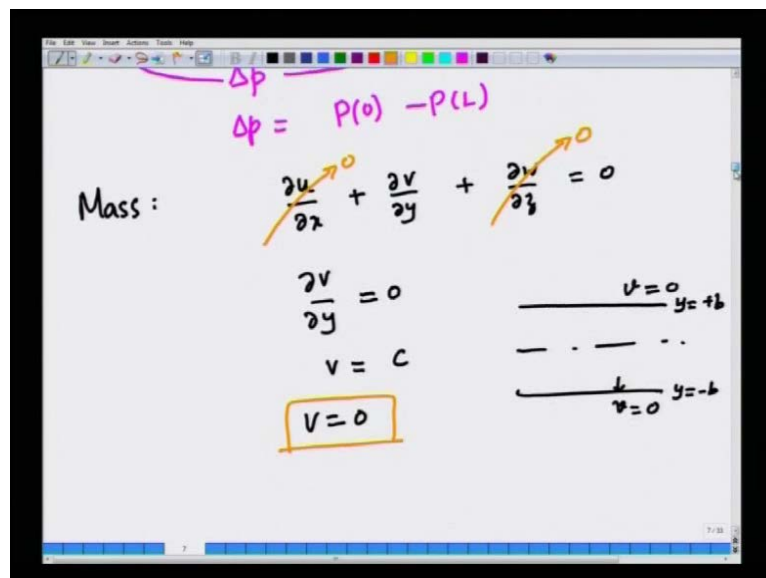 File Edit View Insert Actions Tools Help
Δp
Δp = P(0) - P(L)
Mass : ∂u/∂x → 0 + ∂v/∂y + ∂w/∂z → 0 = 0
∂v/∂y = 0
v = C
V = 0
v = 0
y = +b
y = -b
v = 0
7/33
7